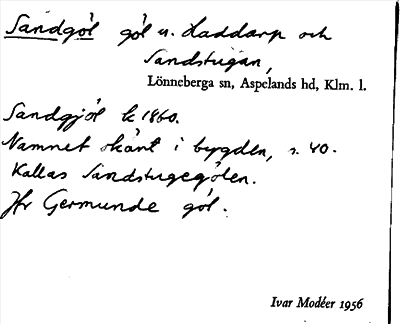 Sandgöl göl n. Haddarp och
Sandstugan,
Lönneberga sn, Aspelands hd, Klm. l.
Sandgjöl k 1860.
Namnet okänt i bygden, s. 40.
Kallas Sandstugegölen.
Jfr Germunde göl.
Ivar Modéer 1956